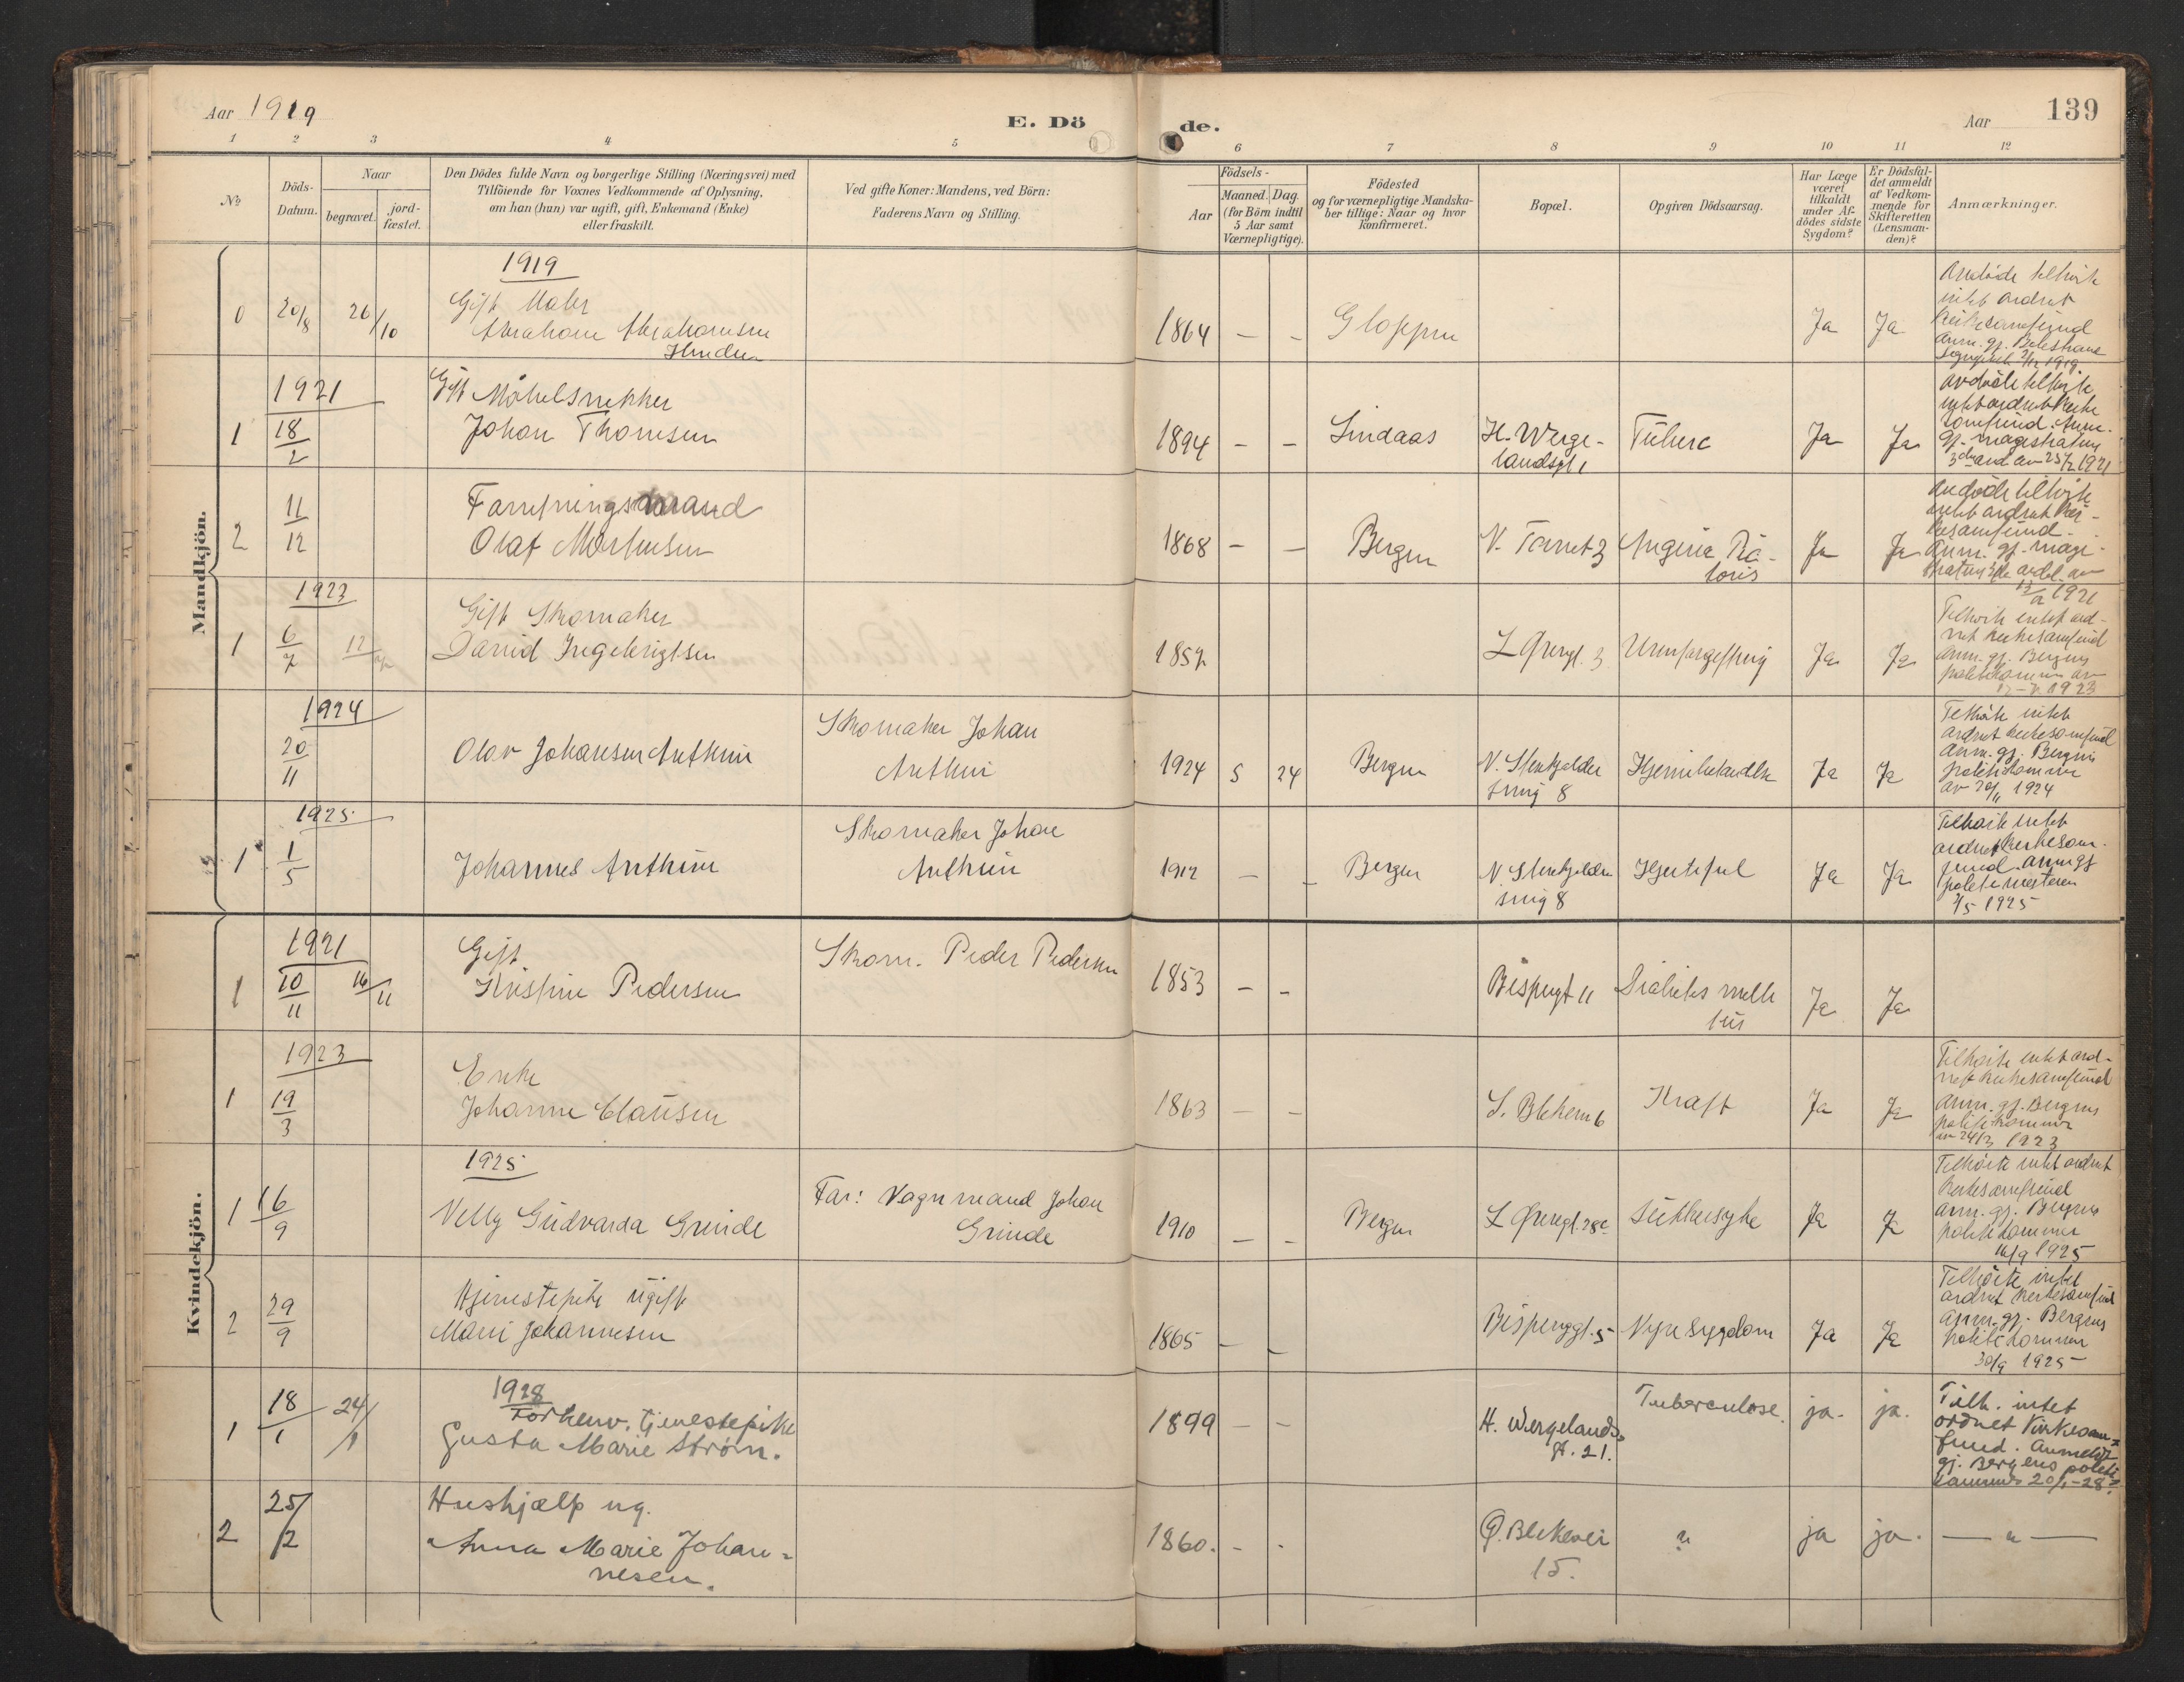 Aar 1919
E. Döde.
Aar
139
1 2 3 4 5 6 7 8 9 10 11 12
No
Döds-
Datum.
Naar
begravet.
jord-
fæstet.
Den Dödes fulde Navn og borgerlige Stilling (Næringsvei) med
Tilföiende for Voxnes Vedkommende af Oplysning,
om han (hun) var ugift, gift, Enkemand (Enke)
eller fraskilt.
Ved gifte Koner: Mandens, ved Börn:
Faderens Navn og Stilling.
Födsels-
Aar
Maaned. Dag
(for Börn indtil
5 Aar samt
Værnepligtige).
Födested
og for værnepligtige Mandska-
ber tillige: Naar og hvor
konfirmeret.
Bopæl.
Opgiven Dödsaarsag.
Har Læge
været
tilkaldt
under Af-
dödes sidste
Sygdom?
Er Dödsfal-
det anmeldt
af Vedkom-
mende for
Skifteretten
(Lensman-
den)?
Anmærkninger.
Mandkjön.
1919
0 20/8 26/10
Gift Maler
Abraham Abrahamsen
1864 — -
Gloppen
Ja Ja
Avdöde tilhörte
intet ordnet
kirkesamfund
Anm. gj. Balestrand
1919
1921
1 18/2
Gift Möbelsnekker
Johan Thomsen
1894 — —
Lindaas
H. Werge-
landsgt 1
Tuberc
Ja Ja
avdöde tilhörte
intet ordnet kirke
samfund. Anm.
gj. magistratens
3die avd av 25/2 1921
2 11/12
Forretningsmand
Olaf Mortensen
1868 — —
Bergen
V. Torvet 3
Angina Pec-
toris
Ja Ja
Avdöde tilhörte
intet ordnet kir-
kesamfund.
Anm. gj. magi-
straten 3die avdel. av
13/12 1921
1923
1 6/7 12/7
Gift Skomaker
David Ingebrigtsen
1857
L Øvregt. 3
Urinforgiftning
Ja Ja
Tilhörte intet ord-
net kirkesamfund
anm. gj. Bergens
politikammer av
12-7 1923
1924
20/11
Olav Johansen Anthun
Skomaker Johan
Anthun
1924 5 24
Bergen
N. Stenkjelder
smug 8
Hjernebetændelse
Ja Ja
Tilhörte intet
ordnet kirkesamfund
Anm. gj. Bergens
politikammer
av 20/11 1924
1925
1 1/5
Johannes Anthun
Skomaker Johan
Anthun
1912 — —
Bergen
N. Stenkjelder
smug 8
Hjertefeil
Ja Ja
Tilhörte intet
ordnet kirkesam-
fund. anm gj
politimesteren
/5 1925
Kvindekjön.
1921
1 10/11 16/11
Gift
Kristine Pedersen
Skom. Peder Pedersen
1853 — -
Bispengt 11
Diabetes melli
tus
Ja Ja
1923
1 19/3
Enke
Johanne Clausen
1863 — —
S. Blekenv 6
Kraft
Ja Ja
Tilhörte intet ord-
net kirkesamfund
Anm. gj. Bergens
politikammer
av 24/3 1923
1925
1 16/9
Nelly Gudvarda Grinde
Far: Vognmand Johan
Grinde
1910 — —
Bergen
L Øvregt. 28c
Sukkersyke
Ja Ja
Tilhörte intet ordnet
kirkesamfund
anm. gj. Bergens
politikammer
16/9 1925
2 29/9
Tjenestepike ugift
Marie Johannesen
1865 — —
Bispenggt. 5
Nyresygdom
Ja Ja
Tilhörte intet
ordnet kirkesamfund
Anm. gj. Bergens
politikammer
30/9 1925
1928
1 18/1 24/1
Forhenv. Tjenestepike
Gusta Marie Strøm.
1899 — —
H. Wergelands-
gt. 21.
Tuberculose.
ja. ja.
Tilh. intet
ordnet kirkesam-
fund. Anmeldt
gj. Bergens politi-
kammer 20/1-28.
2 25/2
Hushjælp ug.
Anna Marie Johan-
nesen.
1860. - -
Ø. Blekevei
15.
"
ja ja.
— " —